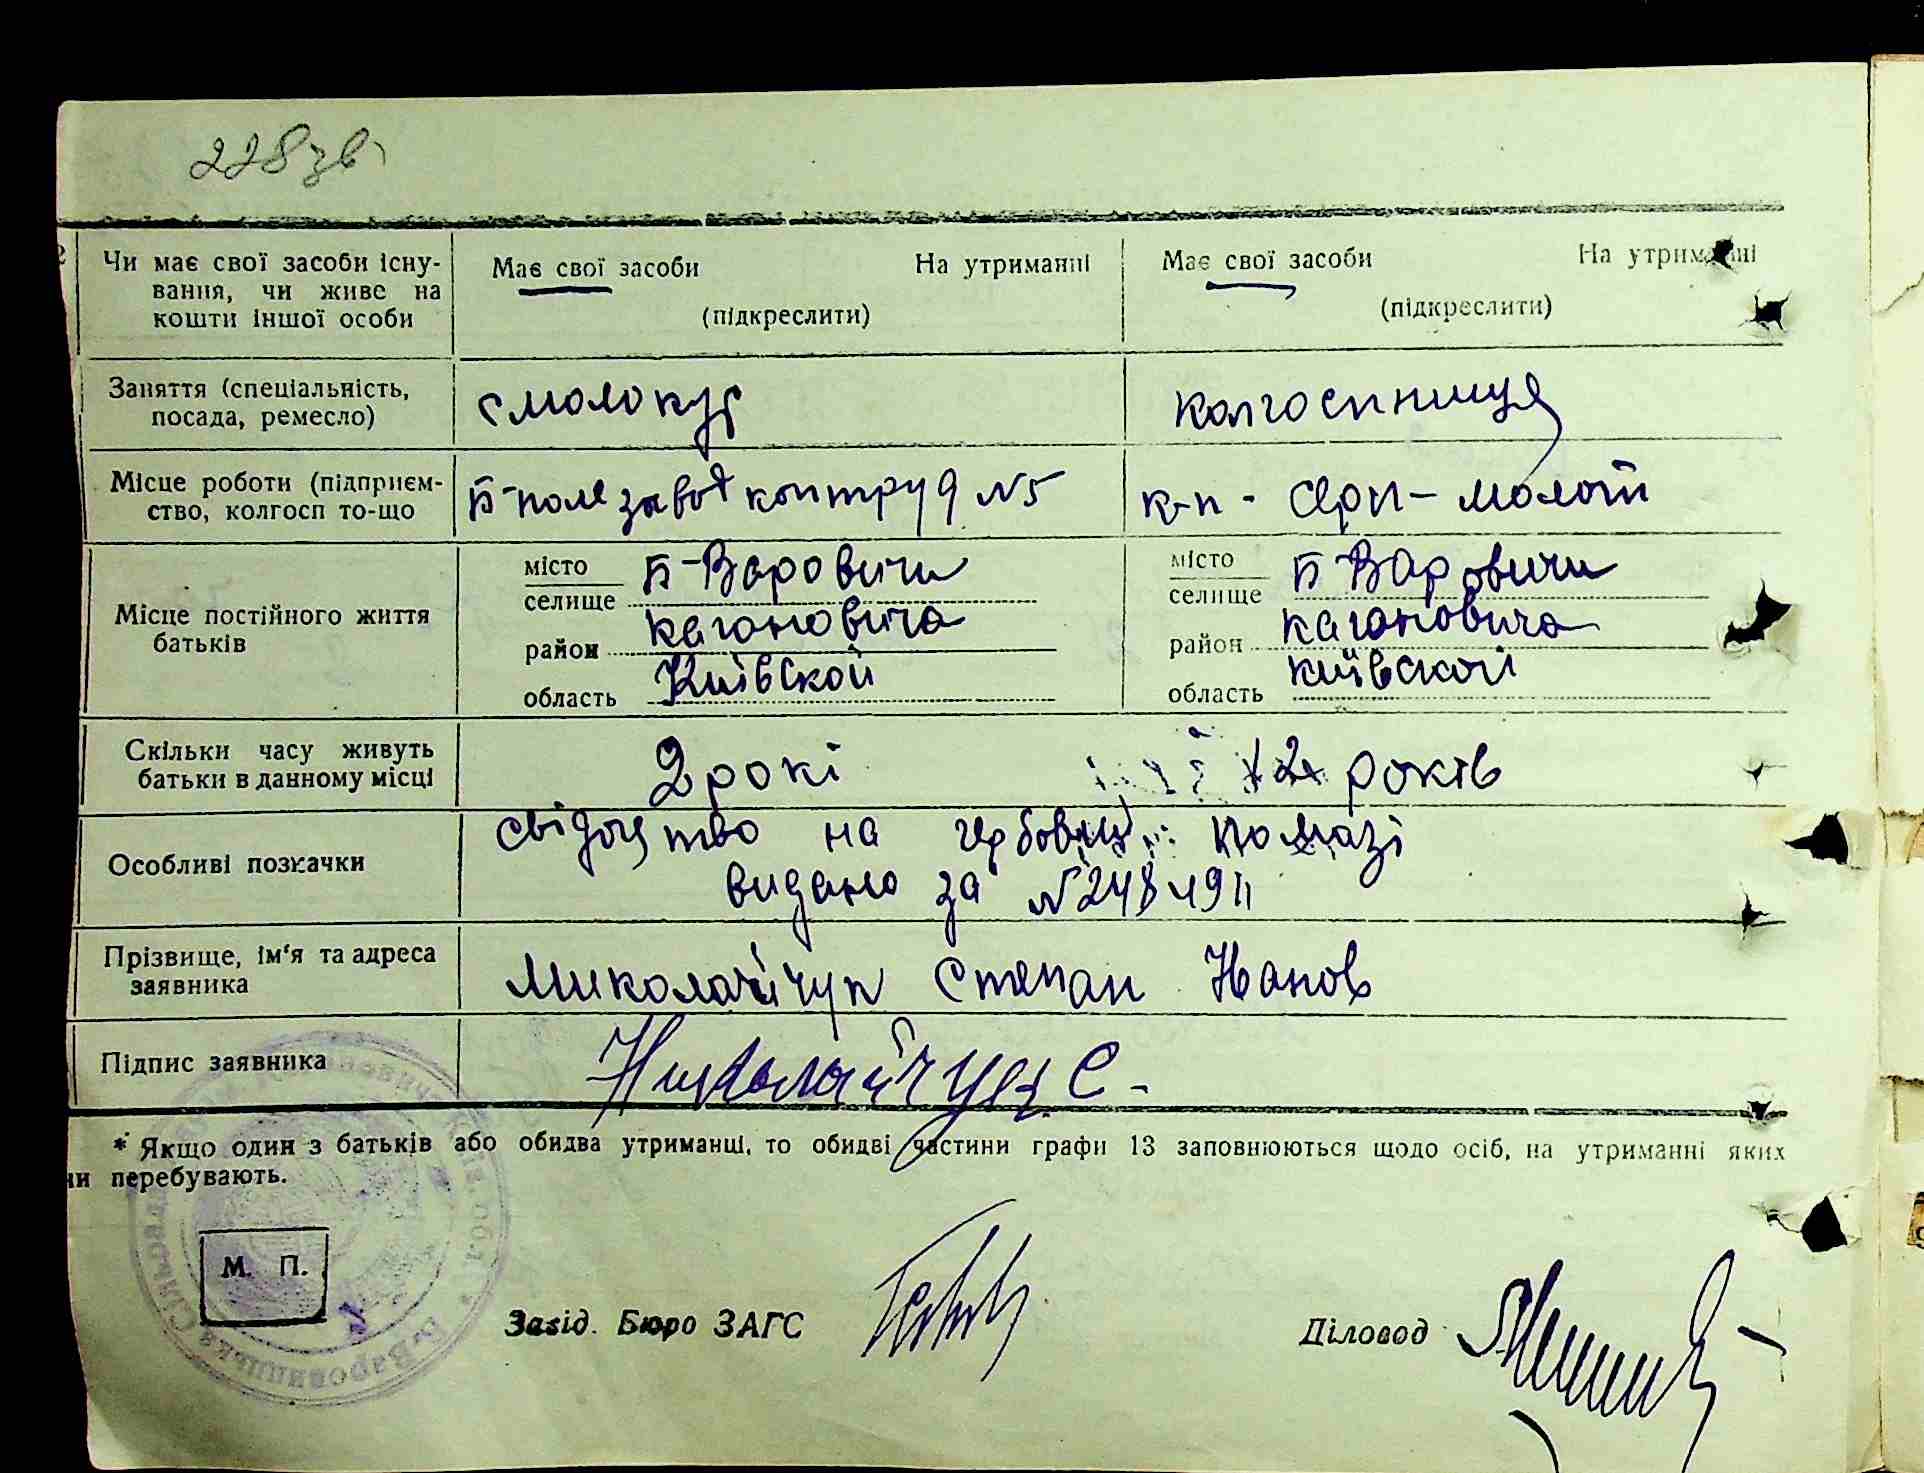 228 зв
Чи має свої засоби існу-
вання, чи живе на
кошти іншої особи
Має свої засоби На утриманні
(підкреслити)
Має свої засоби На утриманні
(підкреслити)
Заняття (спеціальність,
посада, ремесло)
смолокур
колгоспниця
Місце роботи (підприєм-
ство, колгосп то-що
завод №5
к-п - Серп-молот
Місце постійного життя
батьків
місто
селище Б-Варовичи
район кагановича
область Київской
місто
селище Б-Варовичи
район кагановича
область київской
Скільки часу живуть
батьки в данному місці
2 рокі
12 років
Особливі позначки
свідоцтво на гербовий помазі
видано за №
Прізвище, ім'я та адреса
заявника
Миколайчук Степан Иванов
Підпис заявника
Николайчук С -
* Якщо один з батьків або обидва утриманці, то обидві частини графи 13 заповнюються щодо осіб, на утриманні яких
перебувають.
М. П.
Завід. Бюро ЗАГС
Діловод